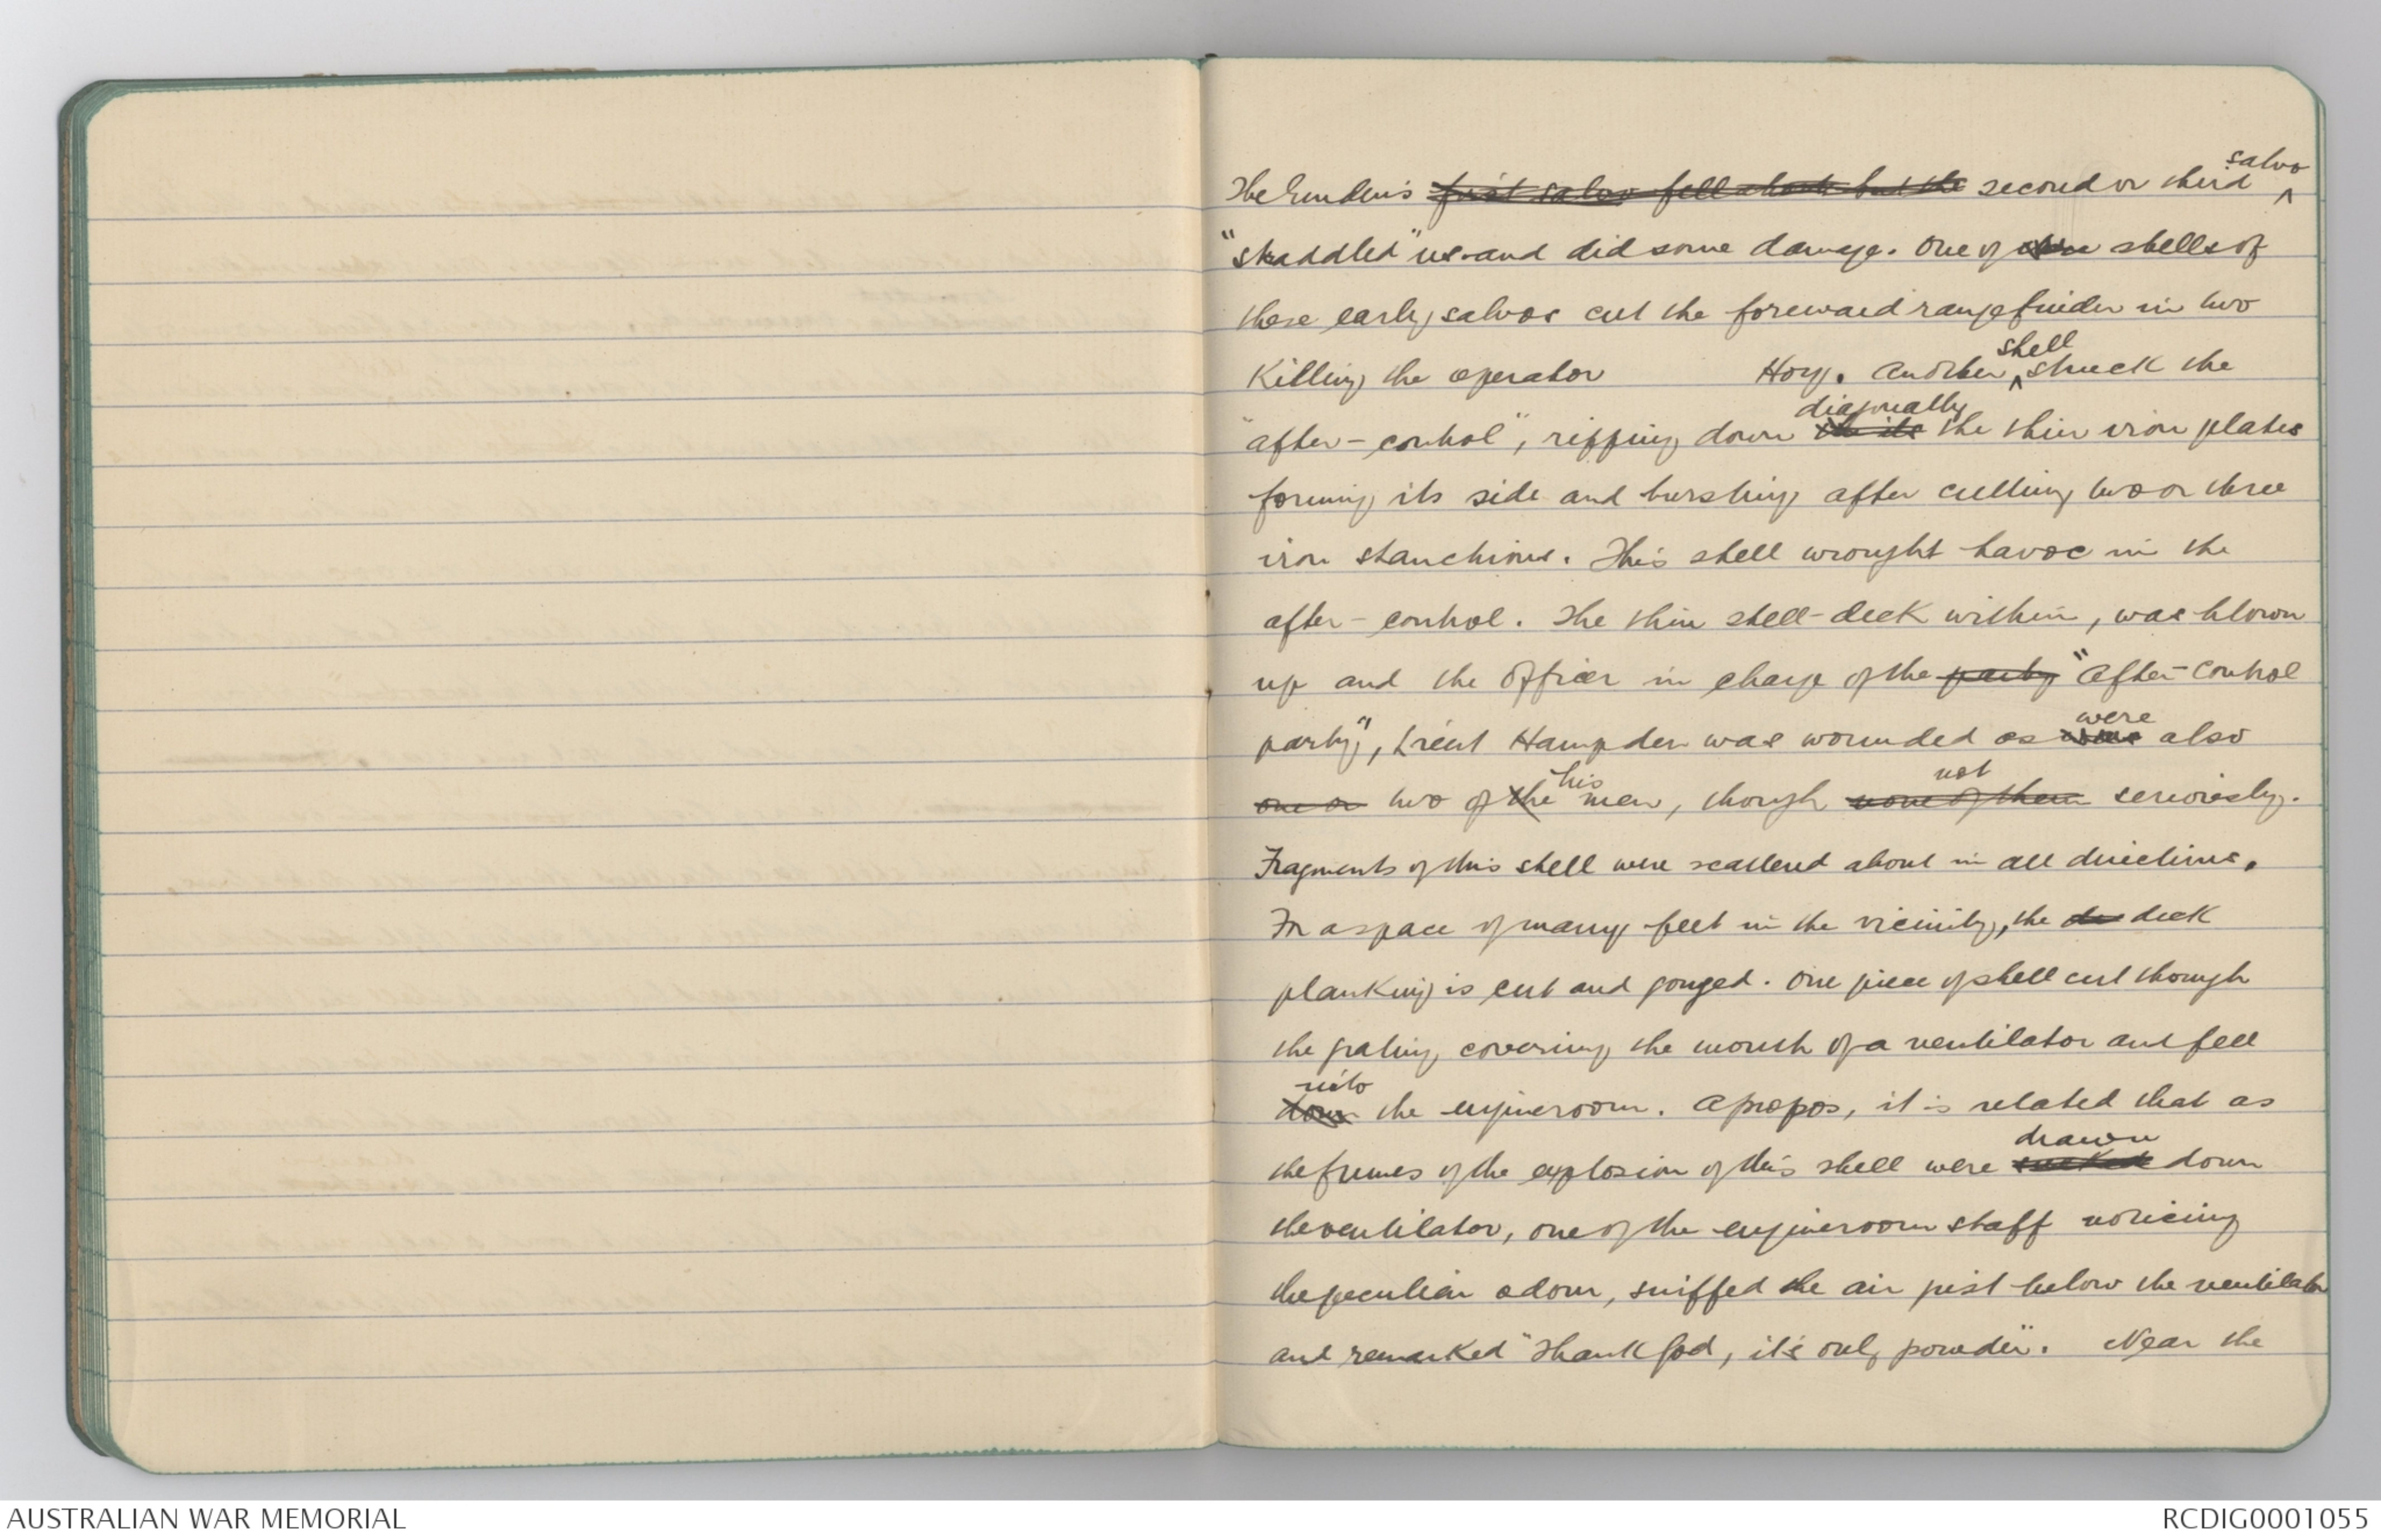 The Emden's first salvo fell short but the second or third salvo
"straddled" us and did some damage. One of shells of
these early salvos cut the foreward rangefinder in two
killing the operator Hoy. Another shell struck the
"after-control", ripping down diagonally the its the thin iron plates
forming its side and bursting after cutting two or three
iron stanchions. This shell wrought havoc in the
after-control. The thin steel-deck within, was blown
up and the officer in charge of the party "After-control
party", Lieut Hampden was wounded as was were also
one or two of the his men, though none of them not seriously.
Fragments of this shell were scattered about in all directions.
For a space of many feet in the vicinity, the de deck
planking is cut and gouged. One piece of shell cut through
the grating covering the mouth of a ventilator and fell
down into the engineroom. Apropos, it is related that as
the fumes of the explosion of this shell were sucked drawn down
the ventilator, one of the engineroom staff noticing
the peculiar odour, sniffed the air just below the ventilator
and remarked "Thank God, it's only powder". Near the
AUSTRALIAN WAR MEMORIAL
RCDIG0001055